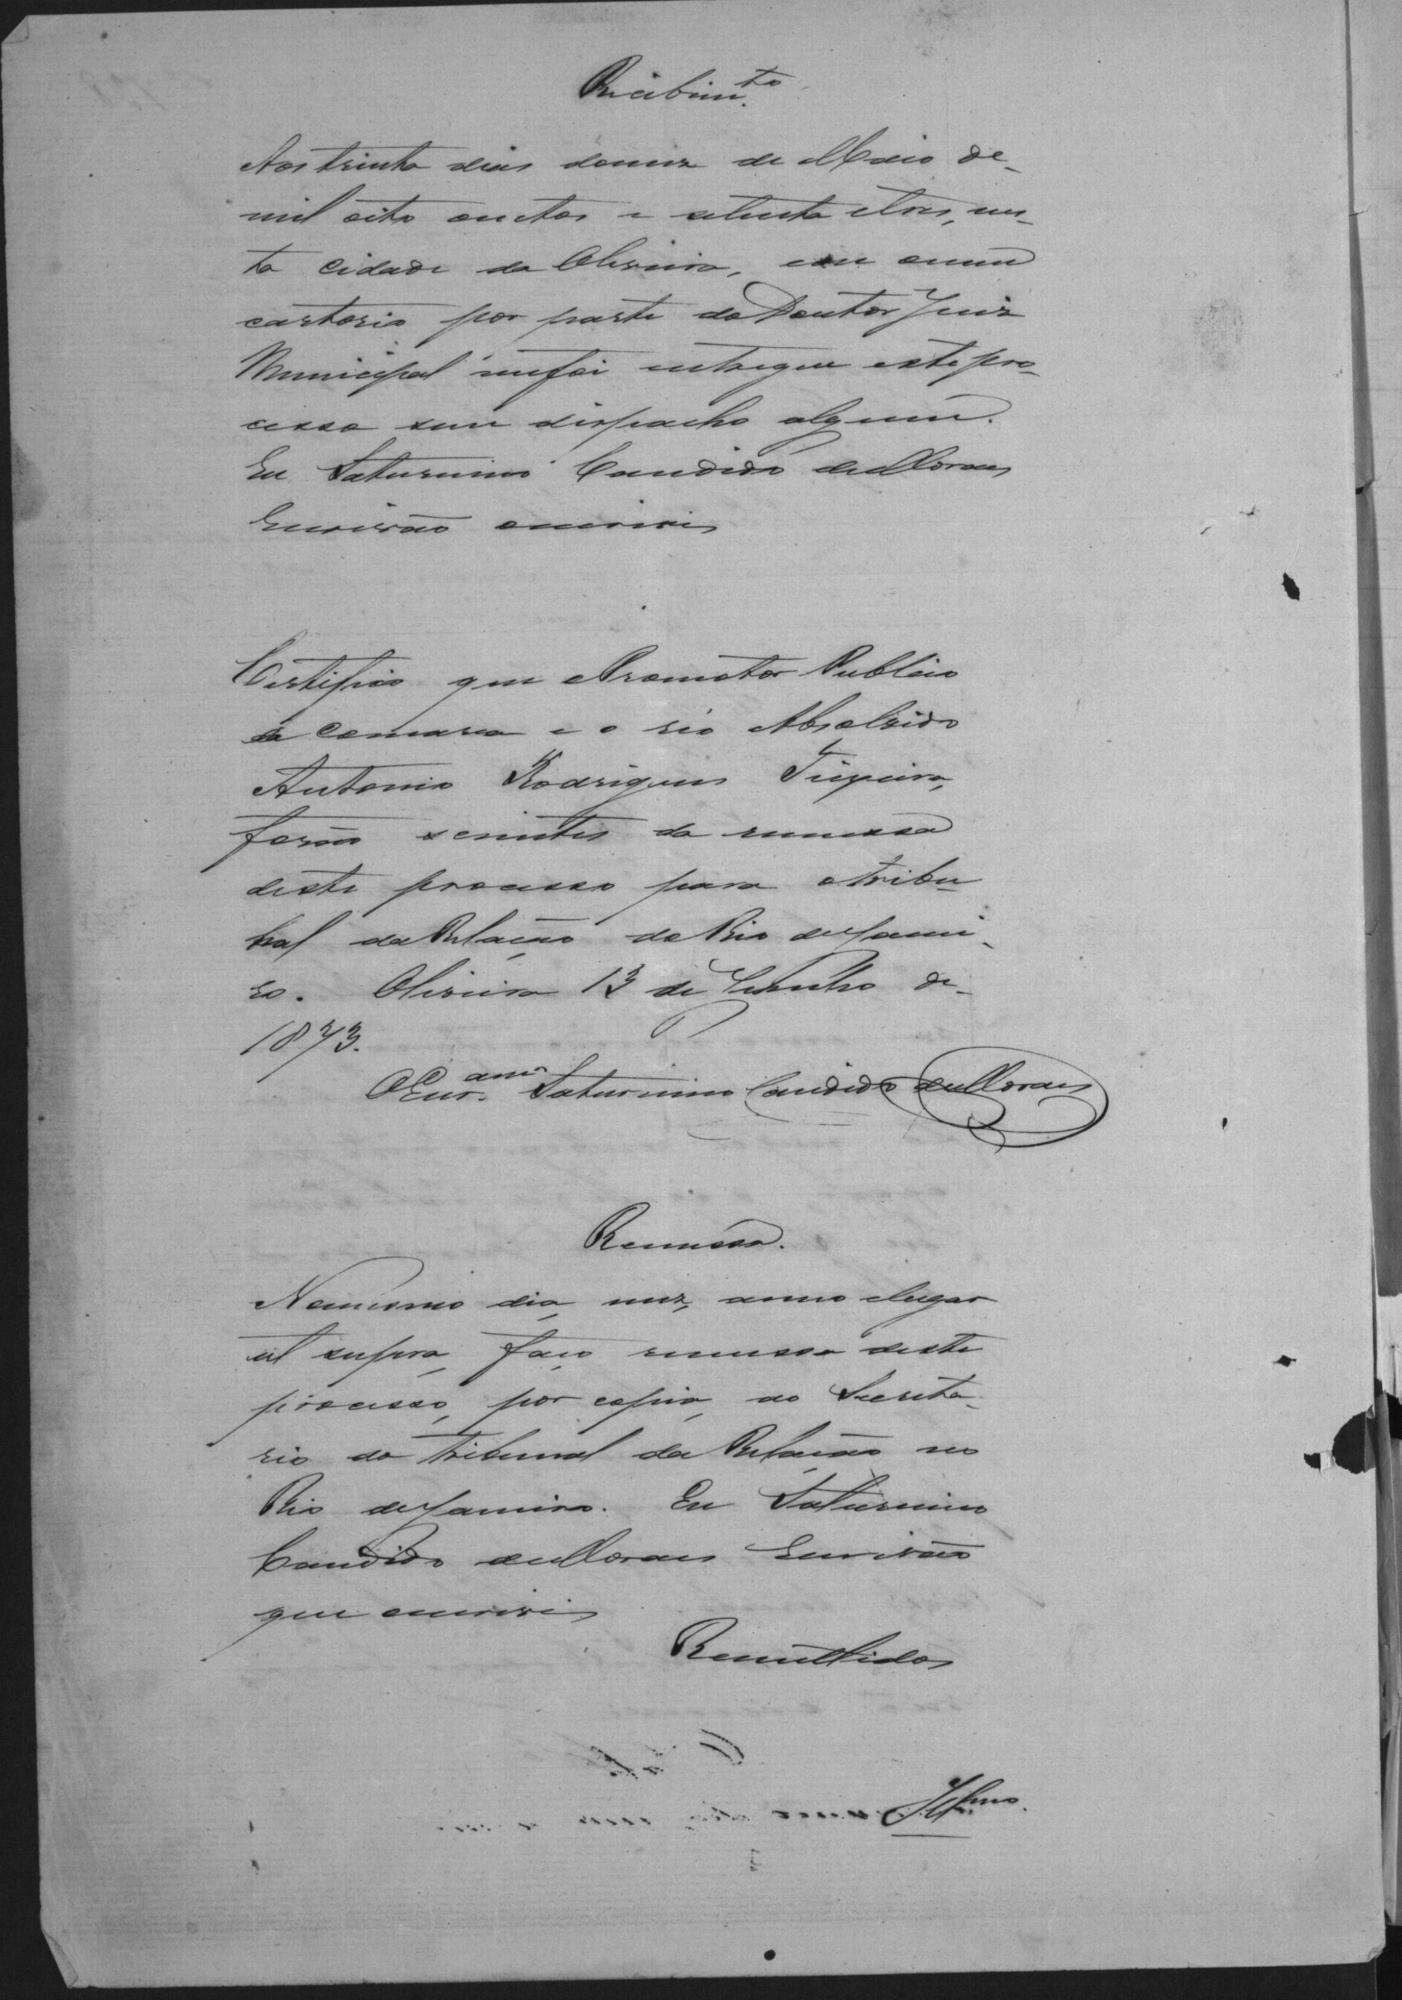 Recebim.to
Aos trinta dias domez de Maio de
mil oito centos e setenta etres, nes-
ta cidade da Oliveira, em meu
cartorio por parte do Doutor Juiz
Municipal mefoi entregue estepro-
cesso sem despacho algum.
Eu Saturnino Candido deMoraes
Escrivão escrevi
Certifico que oPromotor Publico
da comarca e o réo Absolvido
Antonio Rodrigues Teixeira,
forão scientes da remessa
deste processo para otribu-
nal daRelação do Rio deJanei-
ro. Oliveira 13 de Junho de
1873.
OEscr.am Saturnino Candido deMoraes
Remessa.
Nomesmo dia, mez, anno elugar
ut supra, faço remessa deste
processo, por copia, ao Secreta-
rio do Tribunal da Relação no
Rio deJaneiro. Eu Saturnino
Candido deMoraes Escrivão
que escrevi
Remettidos